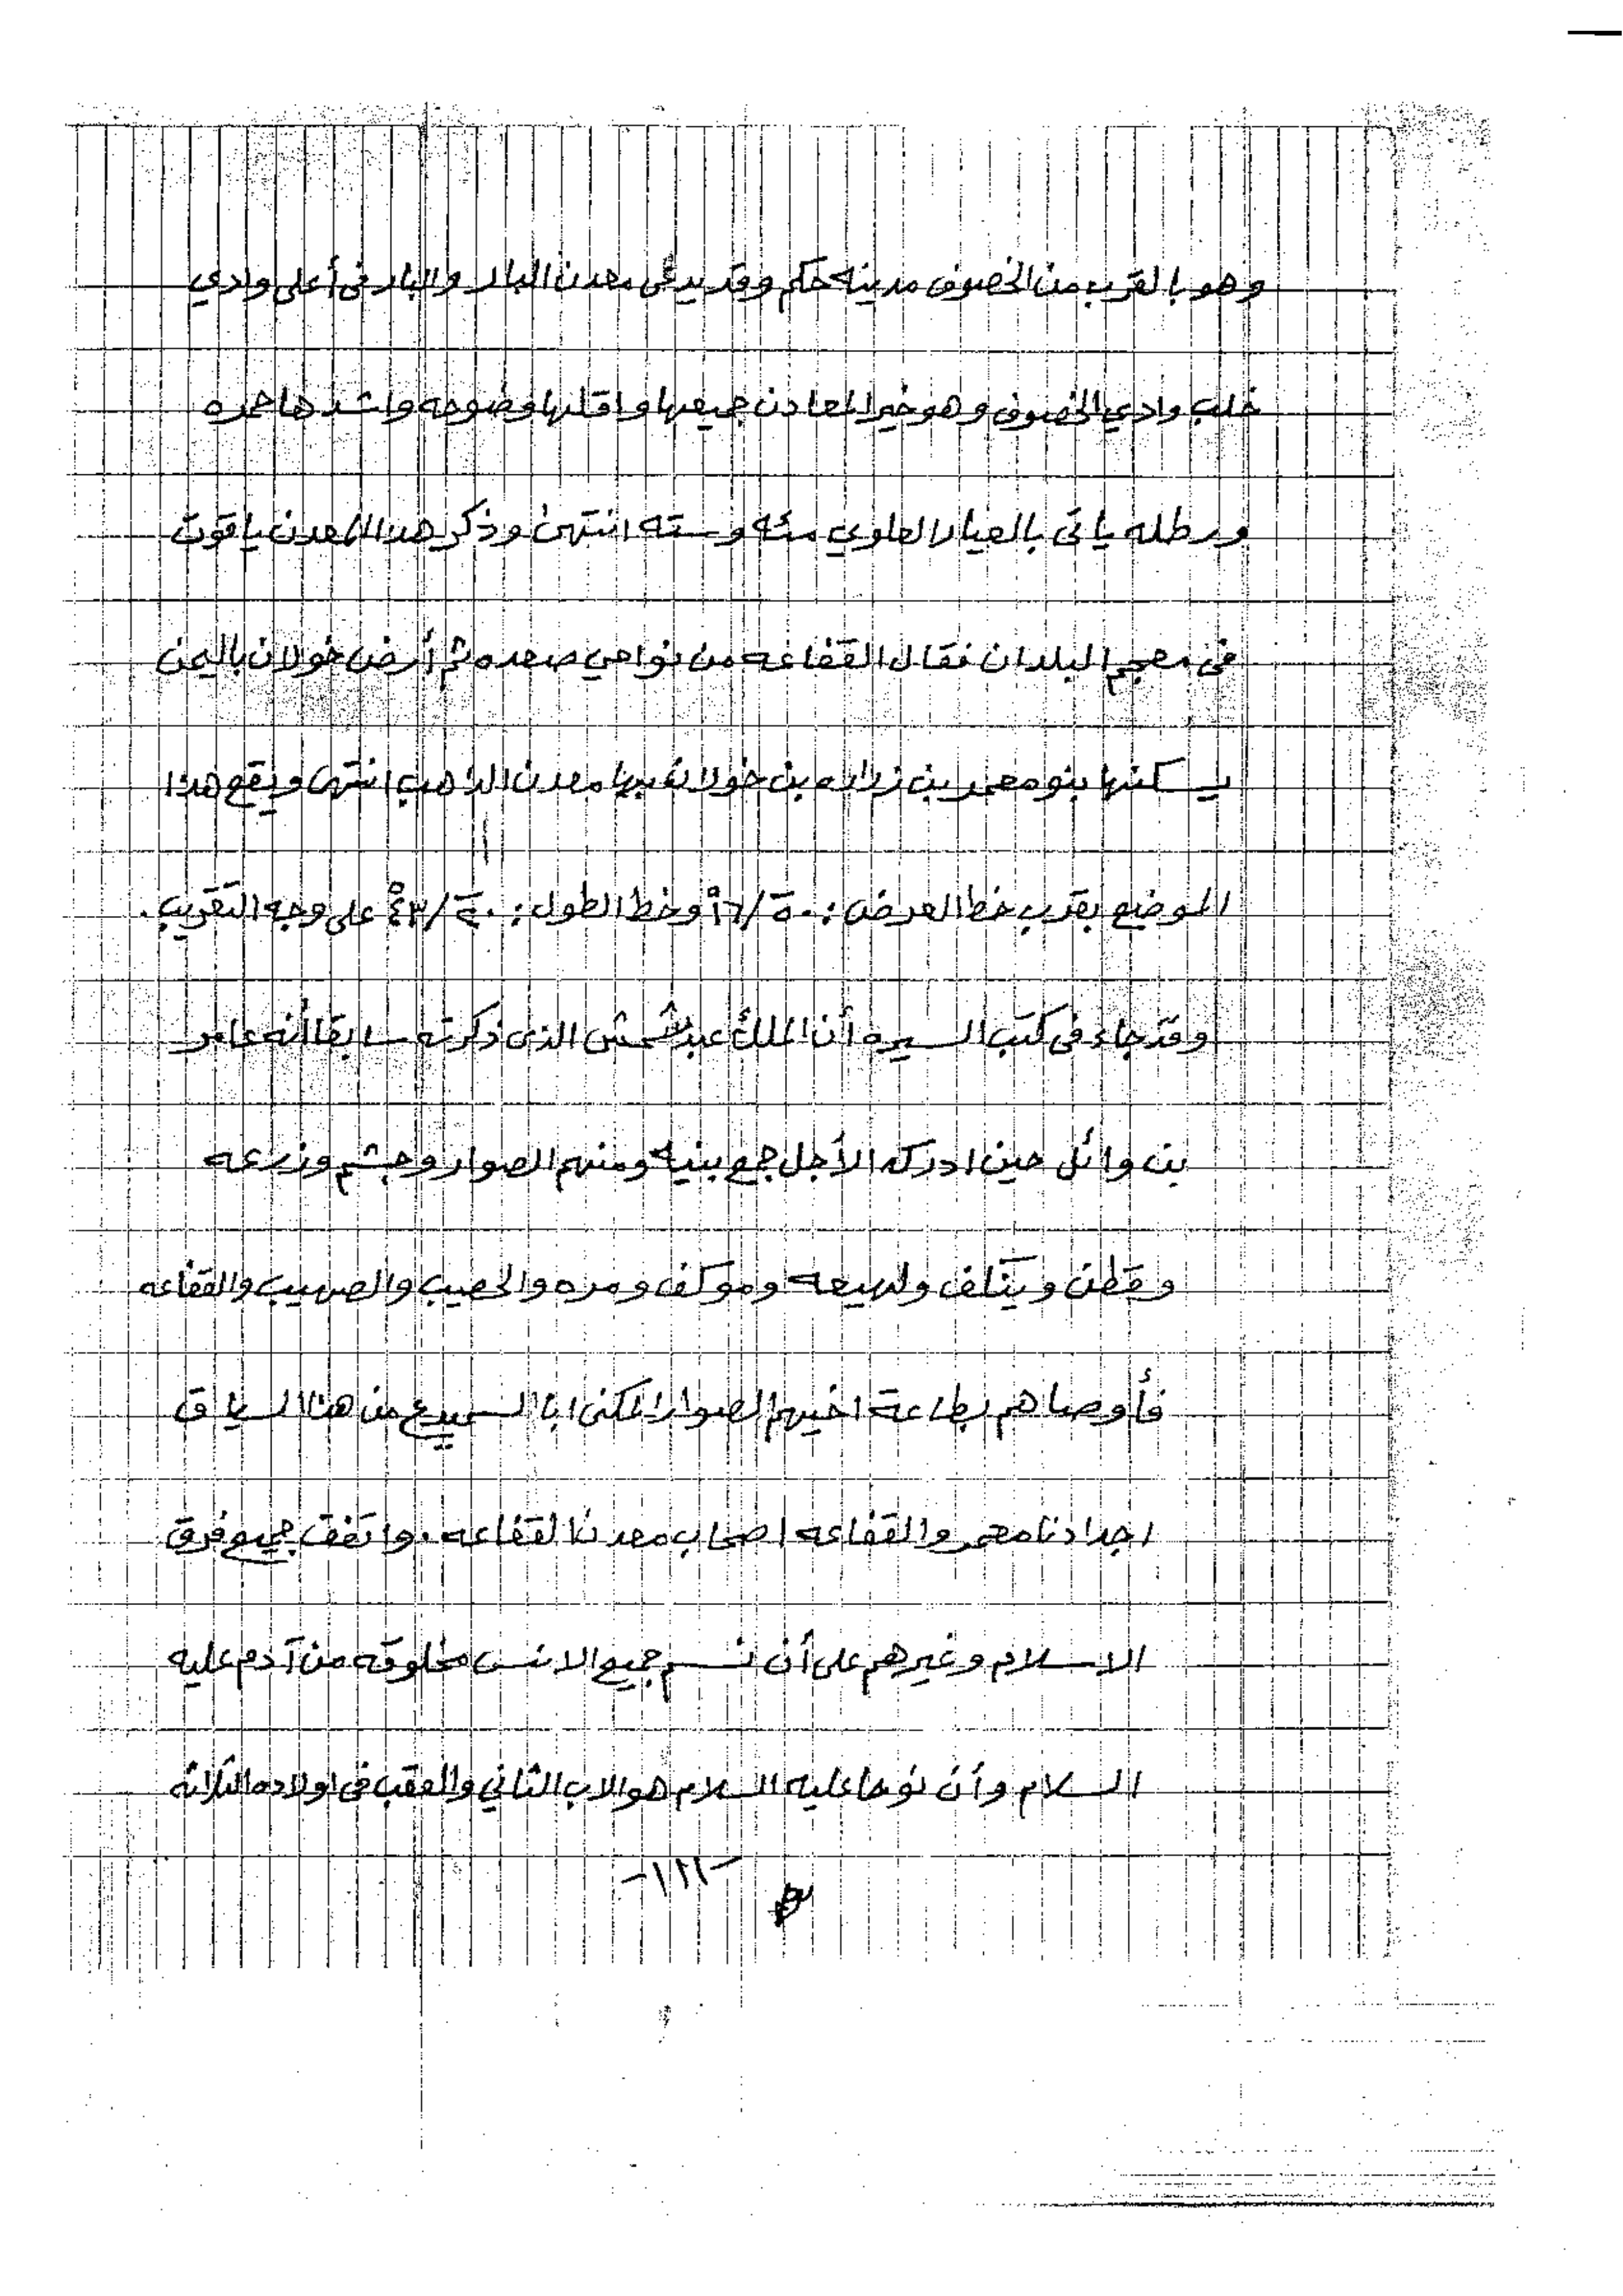 وهو بالقرب من الخصوف مدينه حكم وقد يدعى معدن البار والبار فى أعلى وادي
خلب وادي الخصوف وهو خير المعادن جميعها واقلها وضوحه واشدها حمره
ورطله ياتى بالعيار العلوي مئه وسته انتهى وذكر هذا المعدن ياقوت
فى معجم البلدان فقال القفاعه من نواحي صعده ثم أرض خولان باليمن
يسكنها بنو معمر بن زراره بن خولان بها معدن الذهب انتهى ويقع هذا
الموضع بقرب خط العرض : ٥٠َ/١٦ْ وخط الطول : ٤٠َ/٤٣ْ على وجه التقريب .
وقد جاء فى كتب السيره أن الملك عبد شمس الذى ذكرته سابقا أنه عامر
بن وائل حين ادركه الأجل جمع بنيه ومنهم الصوار وجشم وزرعه
وقطن وينكف ولهيعه وموكف ومره والخصيب والصهيب والقفاعه
فأوصاهم بطاعة اخيهم الصوار المكنى ابا السميدع من هذا السياق
اجدادنا معمر والقفاعه اصحاب معدن القفاعه . واتفق جميع فرق
الاسلام وغيرهم على أن نسم جميع الانس مخلوقه من آدم عليه
السلام وأن نوحا عليه السلام هو الاب الثاني والعقب فى اولاده الثلاثه